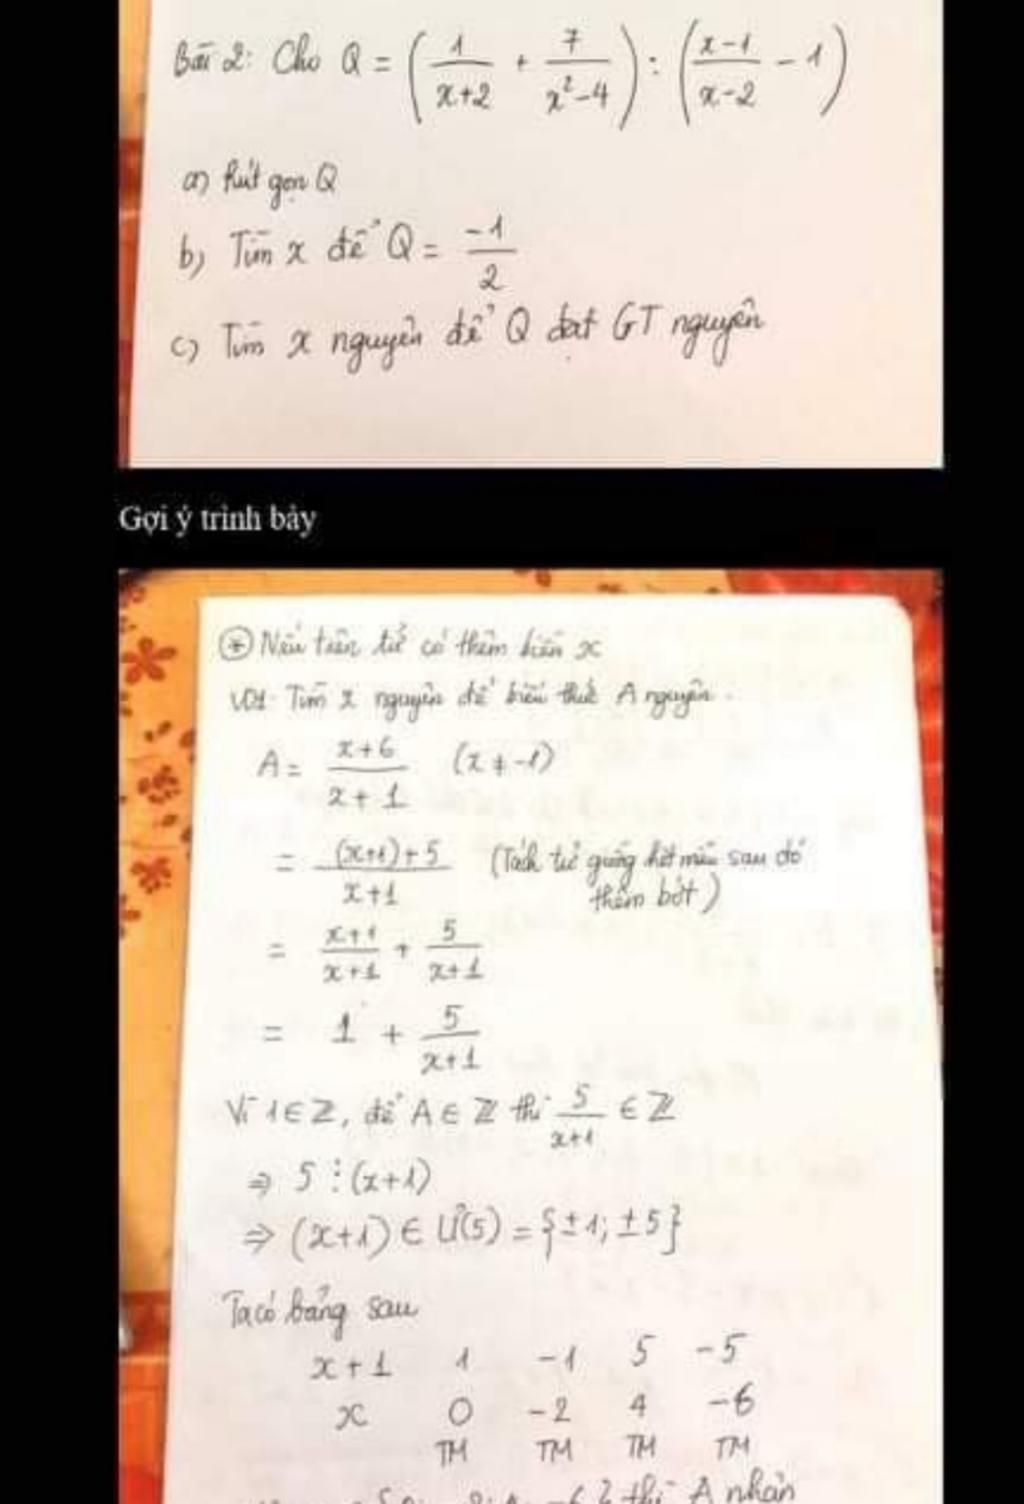 Bài 2: Cho Q = (1/(x+2) + 7/(x²-4)) : ((x-1)/(x-2) - 1)
a) Rút gọn Q
b) Tìm x để Q = -1/2
c) Tìm x nguyên để Q đạt GT nguyên
Gợi ý trình bày
⊛ Nếu trên tử có thêm biến x
VD1: Tìm x nguyên để biểu thức A nguyên.
A = (x+6)/(x+1) (x ≠ -1)
= ((x+1)+5)/(x+1) (Tách tử giống hệt mẫu sau đó
thêm bớt)
= (x+1)/(x+1) + 5/(x+1)
= 1 + 5/(x+1)
Vì 1 ∈ Z, để A ∈ Z thì 5/(x+1) ∈ Z
⇒ 5 ⋮ (x+1)
⇒ (x+1) ∈ Ư(5) = {±1; ±5}
Ta có bảng sau
x+1 1 -1 5 -5
x 0 -2 4 -6
TM TM TM TM
thì A nhận